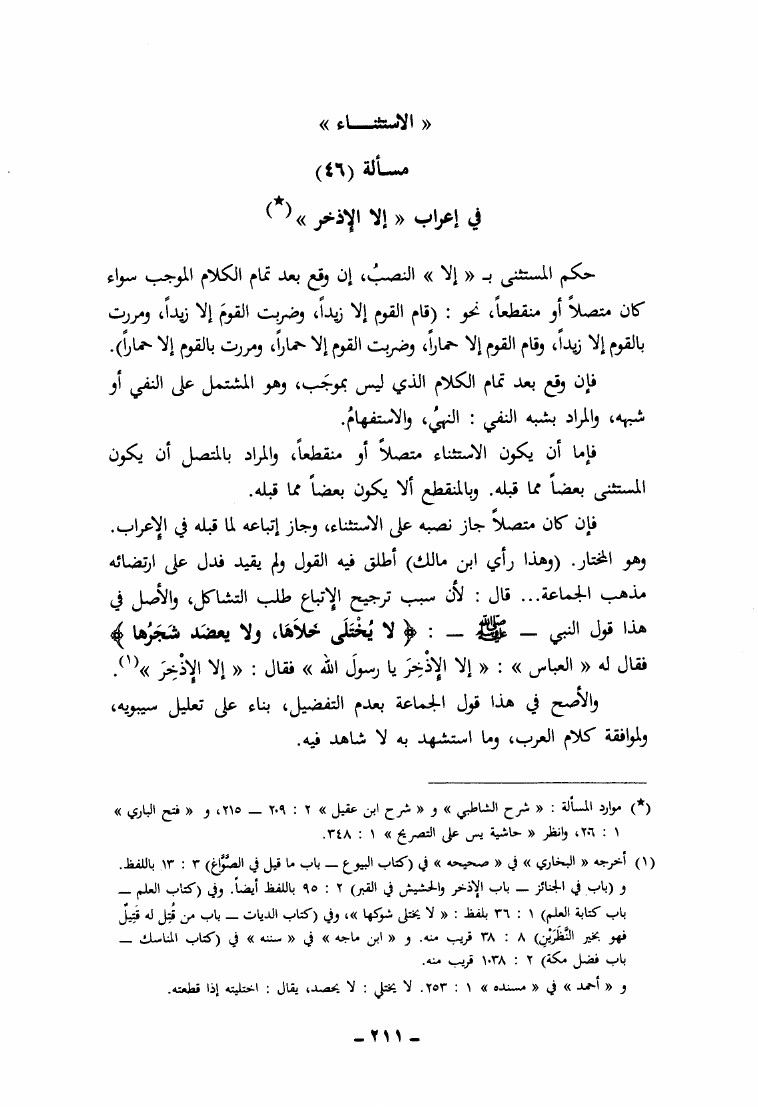 « الاستثنـــاء »
مسألة (٤٦)
في إعراب « إلا الإذخر »(*)
حكم المستثنى بـ « إلا » النصبُ، إن وقع بعد تمام الكلام الموجب سواء
كان متصلاً أو منقطعاً، نحو : (قام القوم إلا زيداً، وضربت القومَ إلا زيداً، ومررت
بالقوم إلا زيداً، وقام القوم إلا حماراً، وضربت القوم إلا حماراً، ومررت بالقوم إلا حماراً).
فإن وقع بعد تمام الكلام الذي ليس بموجَب، وهو المشتمل على النفي أو
شبهه، والمراد بشبه النفي : النهيُ، والاستفهامُ.
فإما أن يكون الاستثناء متصلاً أو منقطعاً، والمراد بالمتصل أن يكون
المستثنى بعضاً مما قبله. وبالمنقطع ألا يكون بعضاً مما قبله.
فإن كان متصلاً جاز نصبه على الاستثناء، وجاز إتباعه لما قبله في الإعراب.
وهو المختار. (وهذا رأي ابن مالك) أطلق فيه القول ولم يقيد فدل على ارتضائه
مذهب الجماعة... قال : لأن سبب ترجيح الإتباع طلب التشاكل، والأصل في
هذا قول النبي — ﷺ — : ﴿ لا يُخْتَلَى خَلاَهَا، ولا يعضَد شَجَرُها ﴾
فقال له « العباس » : « إلا الإذْخِرَ يا رسولَ الله » فقال : « إلا الإذْخِرَ »(١).
والأصح في هذا قول الجماعة بعدم التفضيل، بناء على تعليل سيبويه،
ولموافقة كلام العرب، وما استشهد به لا شاهد فيه.
(*) موارد المسألة : « شرح الشاطبي » و « شرح ابن عقيل » ٢ : ٢٠٩ — ٢١٥، و « فتح الباري »
١ : ٢٠٦، وانظر « حاشية يس على التصريح » ١ : ٣٤٨.
(١) أخرجه « البخاري » في « صحيحه » في (كتاب البيوع — باب ما قيل في الصَّوَّاغ) ٣ : ١٣ باللفظ.
و (باب في الجنائز — باب الإذخر والحشيش في القبر) ٢ : ٩٥ باللفظ أيضاً. وفي (كتاب العلم —
باب كتابة العلم) ١ : ٣٦ بلفظ : « لا يختلى شوكها »، وفي (كتاب الديات — باب من قُتِل له قَتِيلٌ
فهو بخير النَّظَرَيْنِ) ٨ : ٣٨ قريب منه. و « ابن ماجه » في « سننه » في (كتاب المناسك —
باب فضل مكة) ٢ : ١٠٣٨ قريب منه.
و « أحمد » في « مسنده » ١ : ٢٥٣. لا يختلي : لا يحصد، يقال : اختليته إذا قطعته.
– ٢١١ –